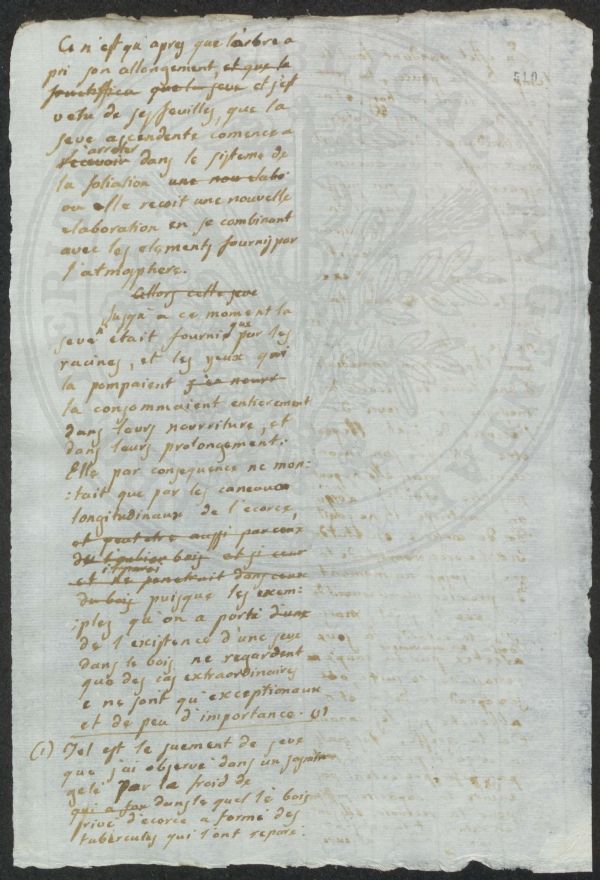 540
Ce n'est qu'apres que l'arbre a
pri son allongement, et que la
que la seve et s'est
vetu de ses feuilles, que la
seve ascendente comence a
arreter
recevoir dans le sisteme de
la foliation une nou elabo
ou elle recoit une nouvelle
elaboration en se combinant
avec les elements fournis par
l'atmosphere.
Allors cette seve
Jusqu'a ce moment la
seve n'etait fournie que par les
racines, et les yeux qui
la pompaient s'en nourr
la consommaient entierement
dans leurs nourriture, et
dans leurs prolongement;
Elle par consequence ne mon:
:tait que par les caneaux
longitudinaux de l'ecorce,
et peut etre aussi par ceux
du bois et si
et ne penetrait dans ceux
du bois puisque les exem:
:ples qu'on a porté d'une
de l'existence d'une seve
dans le bois ne regardent
que des cas extraordinaires
e ne sont qu'exceptionaux
et de peu d'importance. (1)
(1) Tel est le suement de seve
que j'ai observé dans un sapin
gelé par la froid de
qui a for dans le quel le bois
privé d'ecorce a formé des
tubercules qui l'ont reparé.